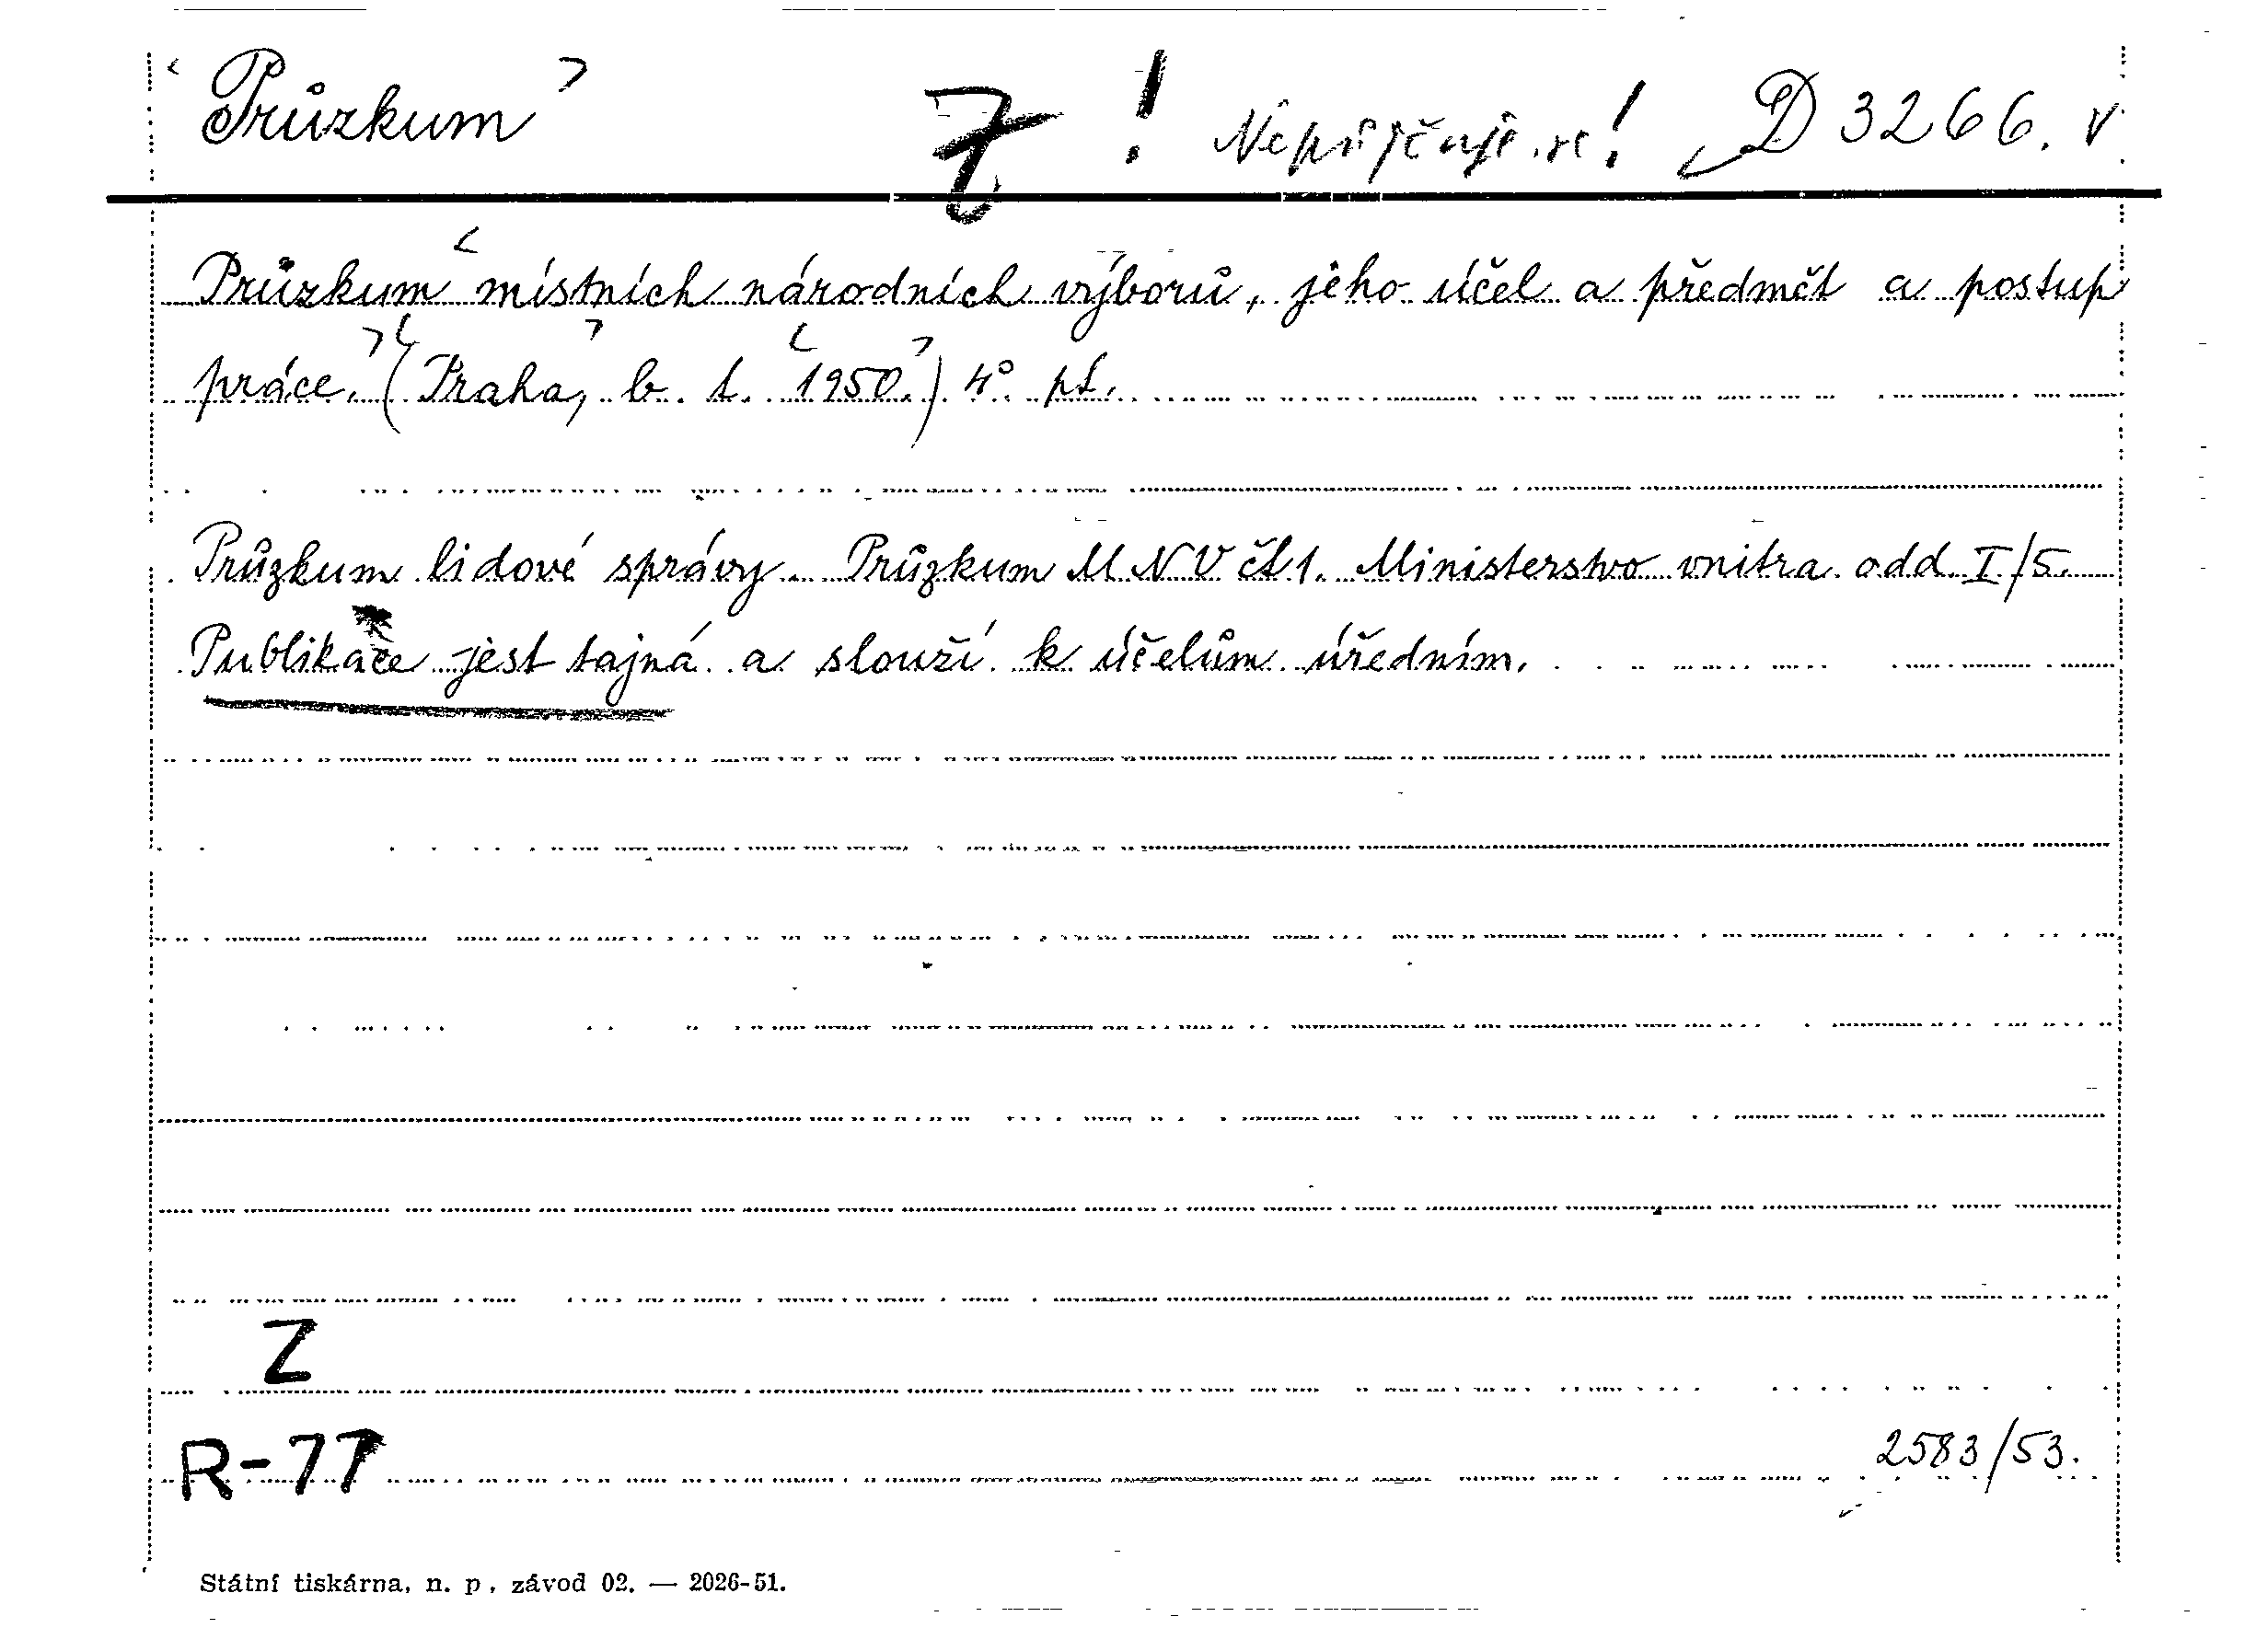 Průzkum Z ! Nepůjčuje se! D 3266. V.
Průzkum místních národních výborů, jeho účel a předmět a postup
práce. (Praha, b. t. 1950.) 4°. pt.
Průzkum lidové správy. Průzkum MNV čt 1. Ministerstvo vnitra odd. I/5.
Publikace jest tajná a slouží k účelům úředním.
Z
R-77
2583/53.
Státní tiskárna, n. p., závod 02. — 2026-51.